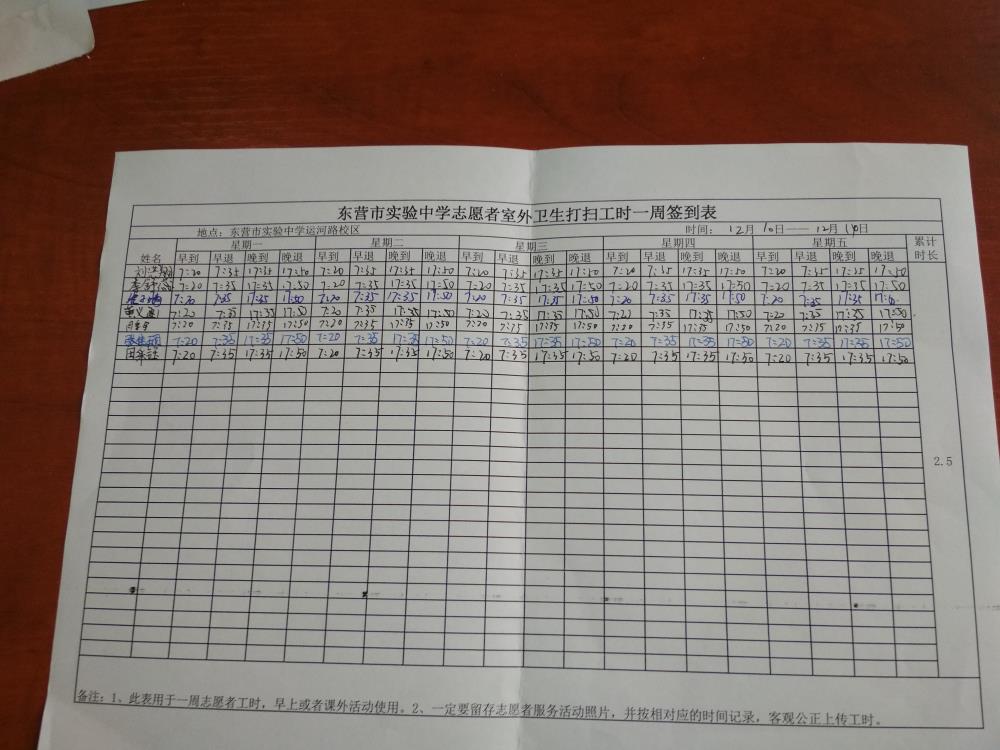 东营市实验中学志愿者室外卫生打扫工时一周签到表
地点：东营市实验中学运河路校区 时间： 12月10日——12月14日
姓名 星期一 星期二 星期三 星期四 星期五 累计时长
早到 早退 晚到 晚退 早到 早退 晚到 晚退 早到 早退 晚到 晚退 早到 早退 晚到 晚退 早到 早退 晚到 晚退
7:20 7:35 17:35 17:50 7:20 7:35 17:35 17:50 7:20 7:35 17:35 17:50 7:20 7:35 17:35 17:50 7:20 7:35 17:35 17:50
7:20 7:35 17:35 17:50 7:20 7:35 17:35 17:50 7:20 7:35 17:35 17:50 7:20 7:35 17:35 17:50 7:20 7:35 17:35 17:50
7:20 7:35 17:35 17:50 7:20 7:35 17:35 17:50 7:20 7:35 17:35 17:50 7:20 7:35 17:35 17:50 7:20 7:35 17:35
7:20 7:35 17:35 17:50 7:20 7:35 17:35 17:50 7:20 7:35 17:35 17:50 7:20 7:35 17:35 17:50 7:20 7:35 17:35 17:50
7:20 7:35 17:35 17:50 7:20 7:35 17:35 17:50 7:20 7:35 17:35 17:50 7:20 7:35 17:35 17:50 7:20 7:35 17:35 17:50
7:20 7:35 17:35 17:50 7:20 7:35 17:35 17:50 7:20 7:35 17:35 17:50 7:20 7:35 17:35 17:50 7:20 7:35 17:35 17:50
7:20 7:35 17:35 17:50 7:20 7:35 17:35 17:50 7:20 7:35 17:35 17:50 7:20 7:35 17:35 17:50 7:20 7:35 17:35 17:50
2.5
备注：1、此表用于一周志愿者工时，早上或者课外活动使用。2、一定要留存志愿者服务活动照片，并按相对应的时间记录，客观公正上传工时。